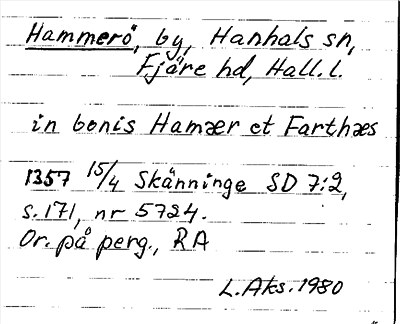 Hammerö, by, Hanhals sn,
Fjäre hd, Hall. l.
in bonis Hamær et Farthæs
1357 15/4 Skänninge SD 7:2,
s. 171, nr 5724.
Or. på perg., RA
L. Aks. 1980